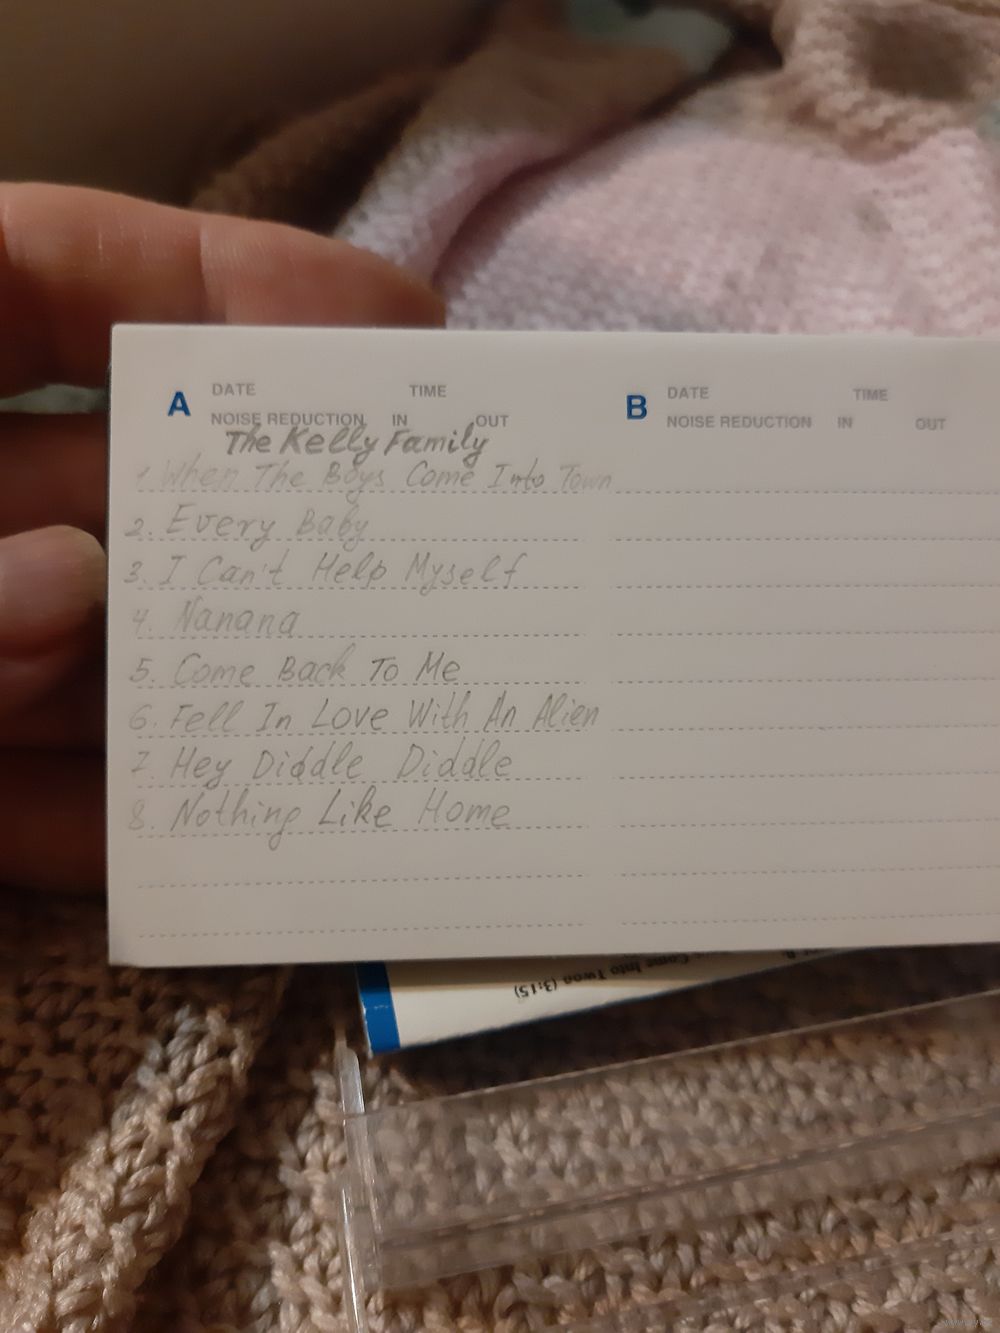 A DATE TIME
NOISE REDUCTION IN OUT
The Kelly Family
1 When The Boys Come Into Town
2. Every Baby
3. I Can't Help Myself
4. Nanana
5. Come Back To Me
6. Fell In Love With An Alien
7. Hey Diddle Diddle
8. Nothing Like Home
B DATE TIME
NOISE REDUCTION IN OUT
Come Into Twon (3:15)